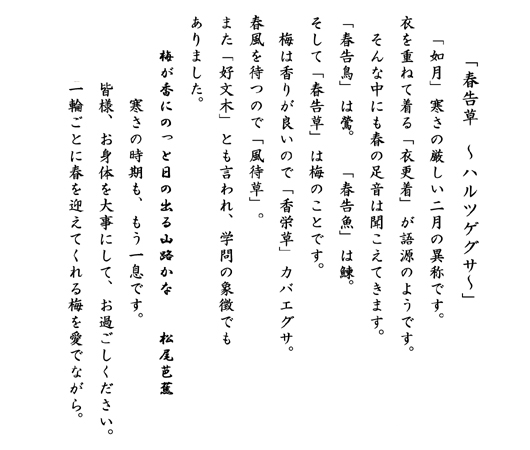 「春告草　～ハルツゲグサ～」
「如月」寒さの厳しい二月の異称です。
衣を重ねて着る「衣更着」が語源のようです。
そんな中にも春の足音は聞こえてきます。
「春告鳥」は鶯。　「春告魚」は鰊。
そして「春告草」は梅のことです。
梅は香りが良いので「香栄草」カバエグサ。
春風を待つので「風待草」。
また「好文木」とも言われ、学問の象徴でも
ありました。
梅が香にのっと日の出る山路かな　　松尾芭蕉
寒さの時期も、もう一息です。
皆様、お身体を大事にして、お過ごしください。
一輪ごとに春を迎えてくれる梅を愛でながら。